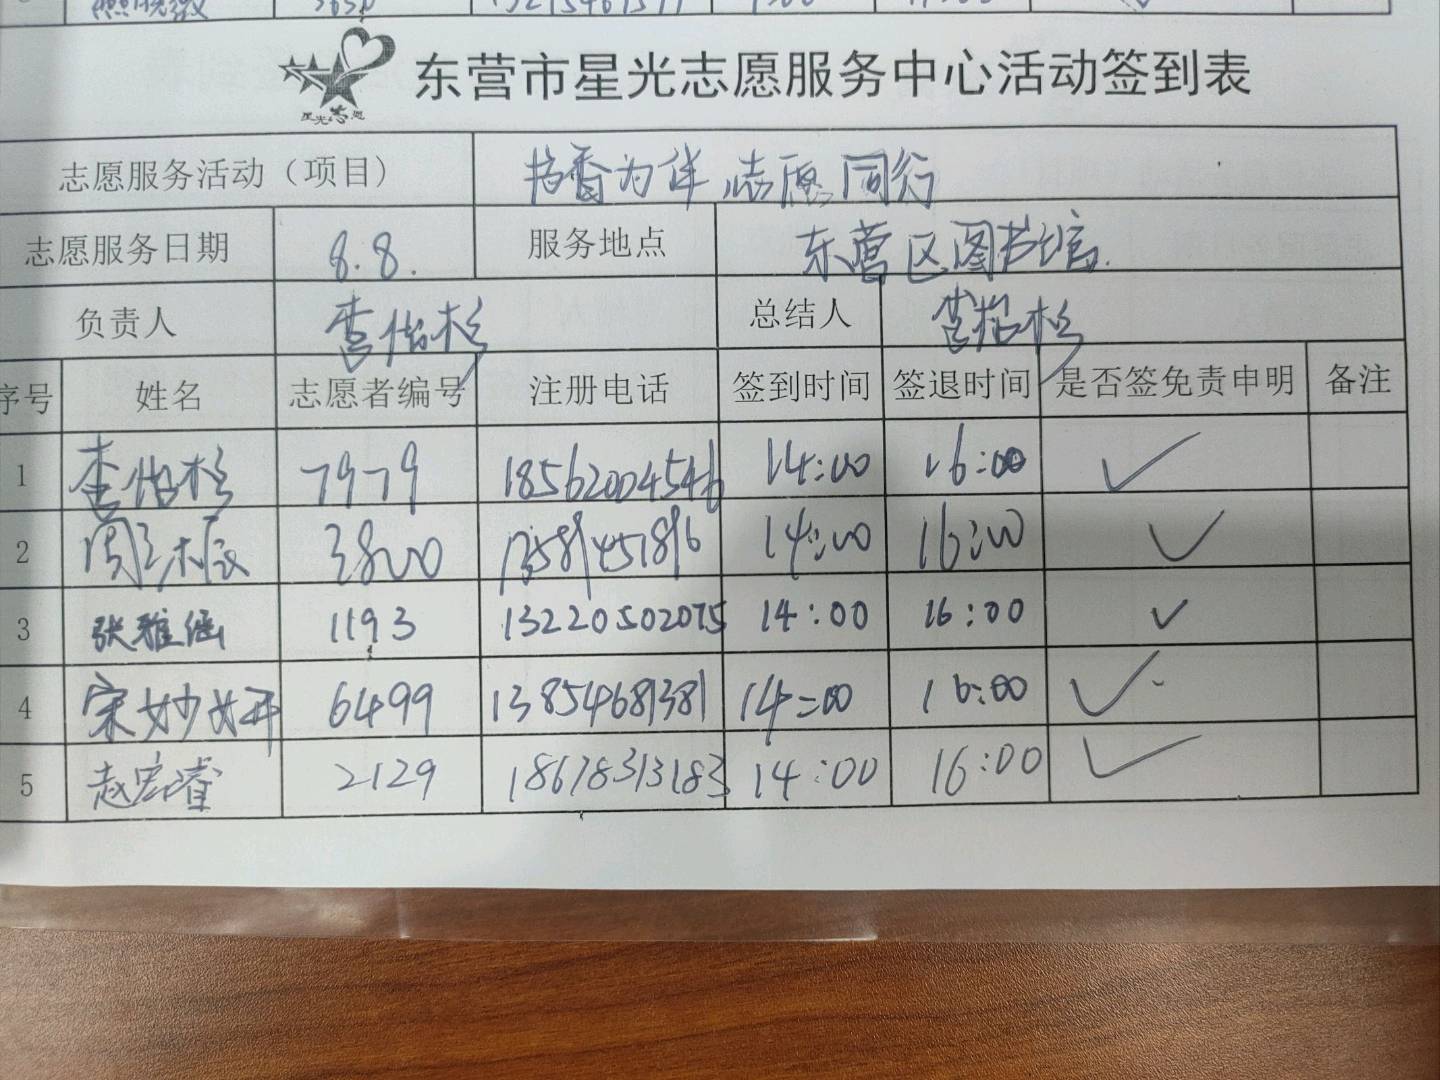 东营市星光志愿服务中心活动签到表
星光志愿
志愿服务活动（项目） 书香为伴 志愿同行
志愿服务日期 8.8. 服务地点 东营区图书馆
负责人 李怡杉 总结人 李怡杉
序号 姓名 志愿者编号 注册电话 签到时间 签退时间 是否签免责申明 备注
1 李怡杉 7979 18562004546 14:00 16:00 ✓
2 3800 13589451896 14:00 16:00 ✓
3 张雅涵 1193 13220502075 14:00 16:00 ✓
4 宋妙妍 6499 13854681381 14:00 16:00 ✓
5 赵宏睿 2129 18678313183 14:00 16:00 ✓